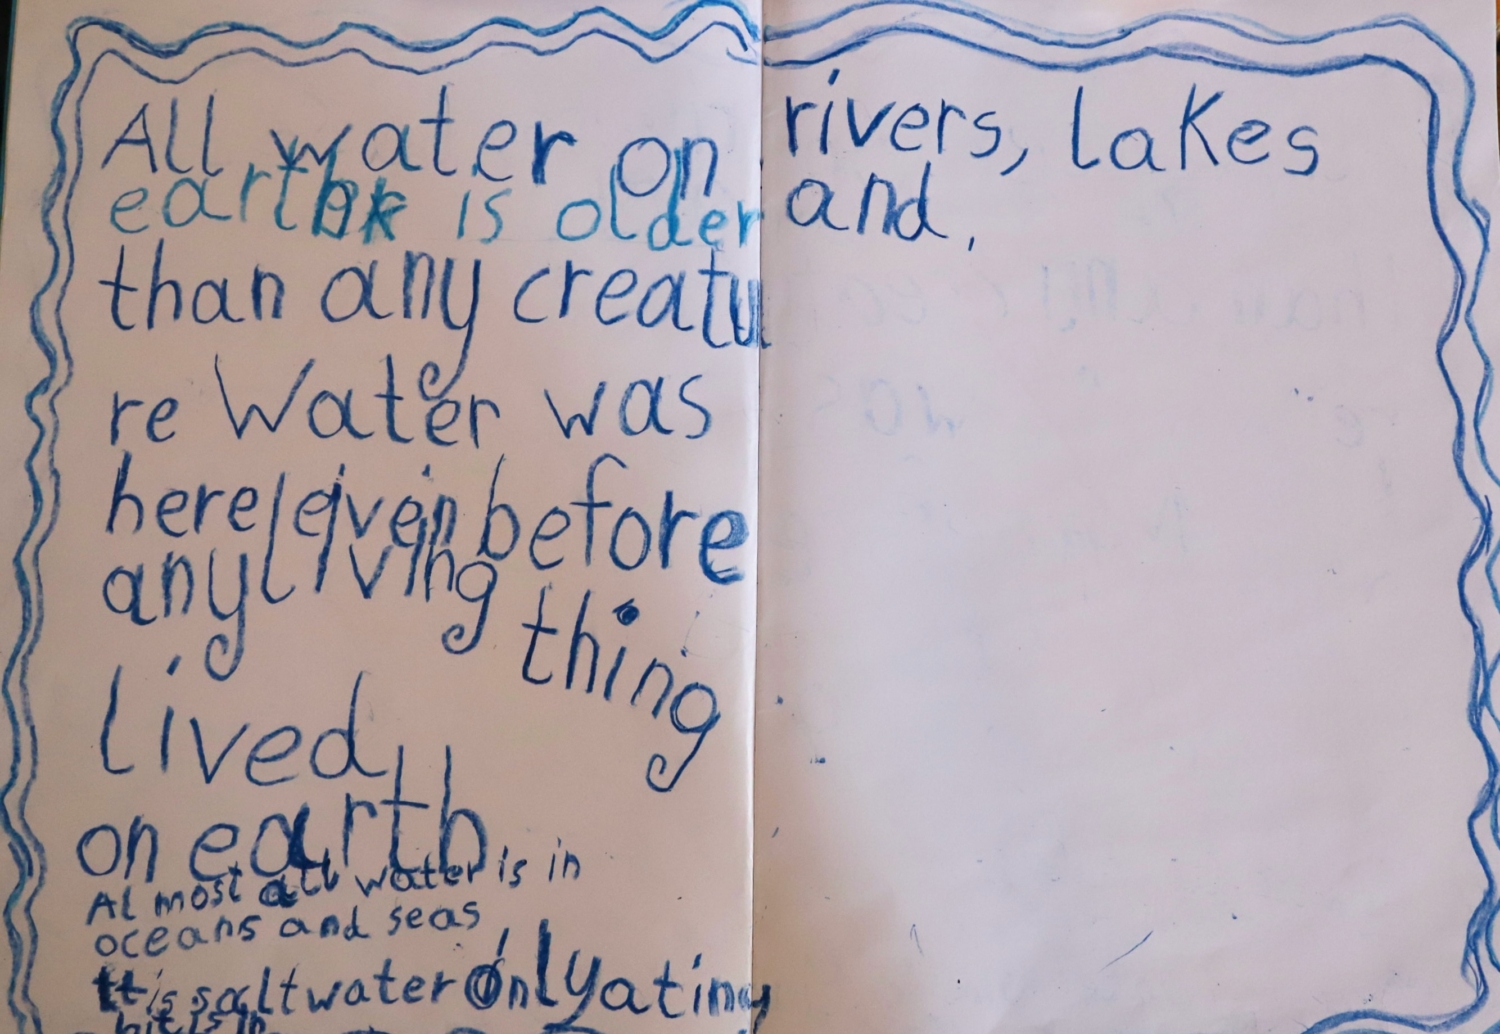 All water on
earth is older
than any creatu
re Water was
here even before
any living
thing
lived
on earth.
Almost all water is in
oceans and seas
It is saltwater Only a tiny
bit is in
rivers, lakes
and,